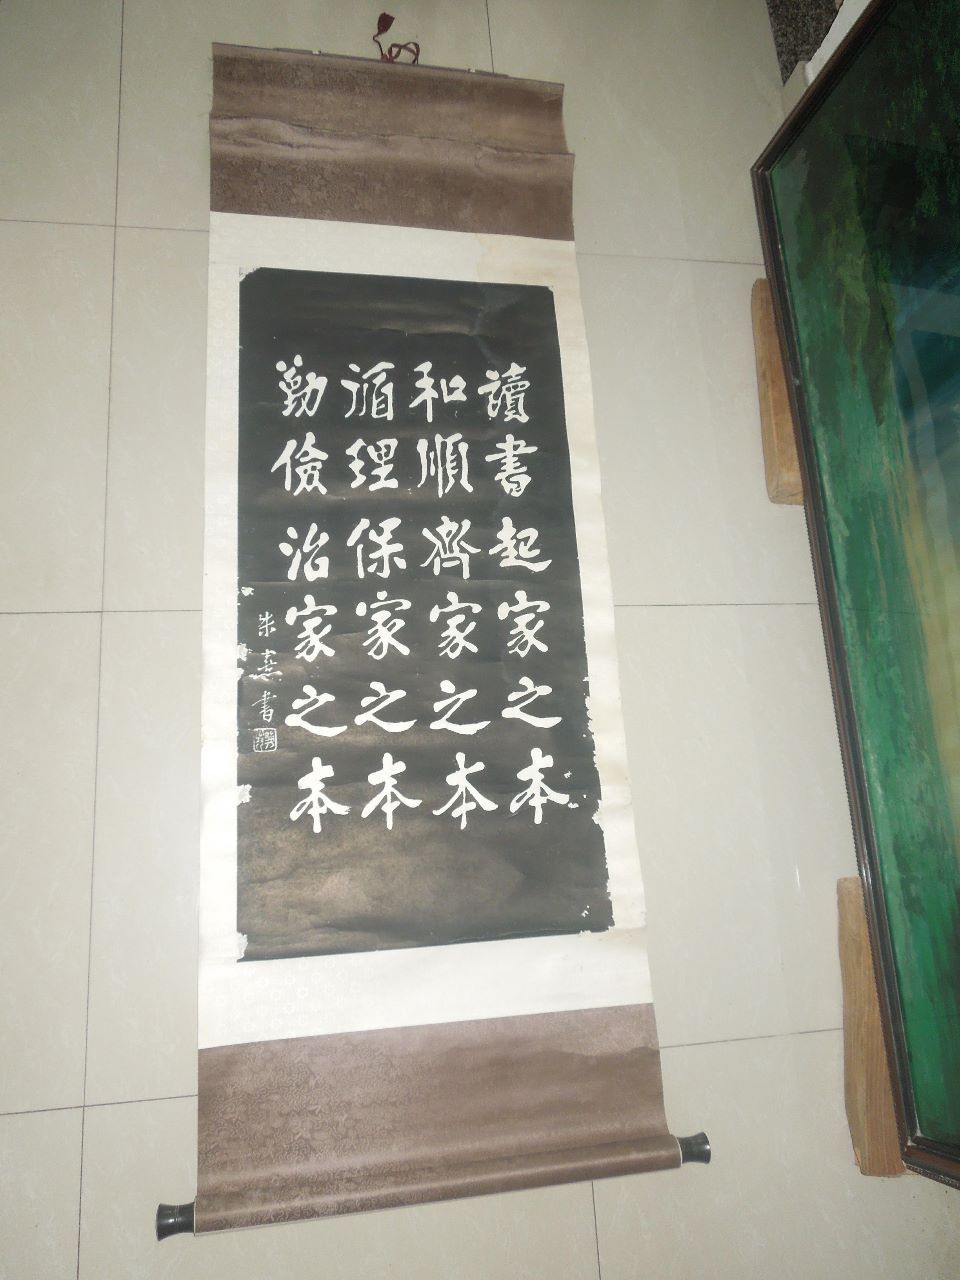 讀書起家之本
和順齊家之本
循理保家之本
勤儉治家之本
朱熹書